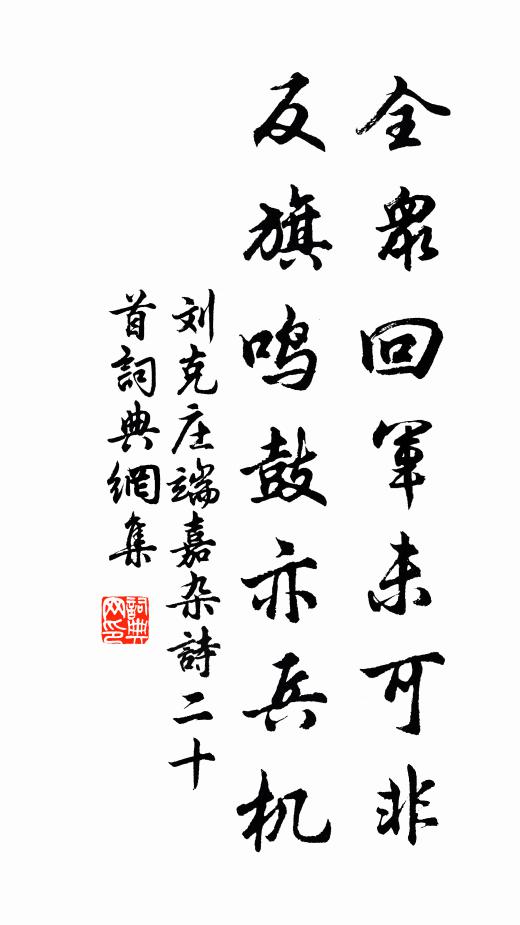 全衆回军未可非
反旗鸣鼓亦兵机
刘克庄端嘉杂詩二十
首詞典網集
詞典
网印